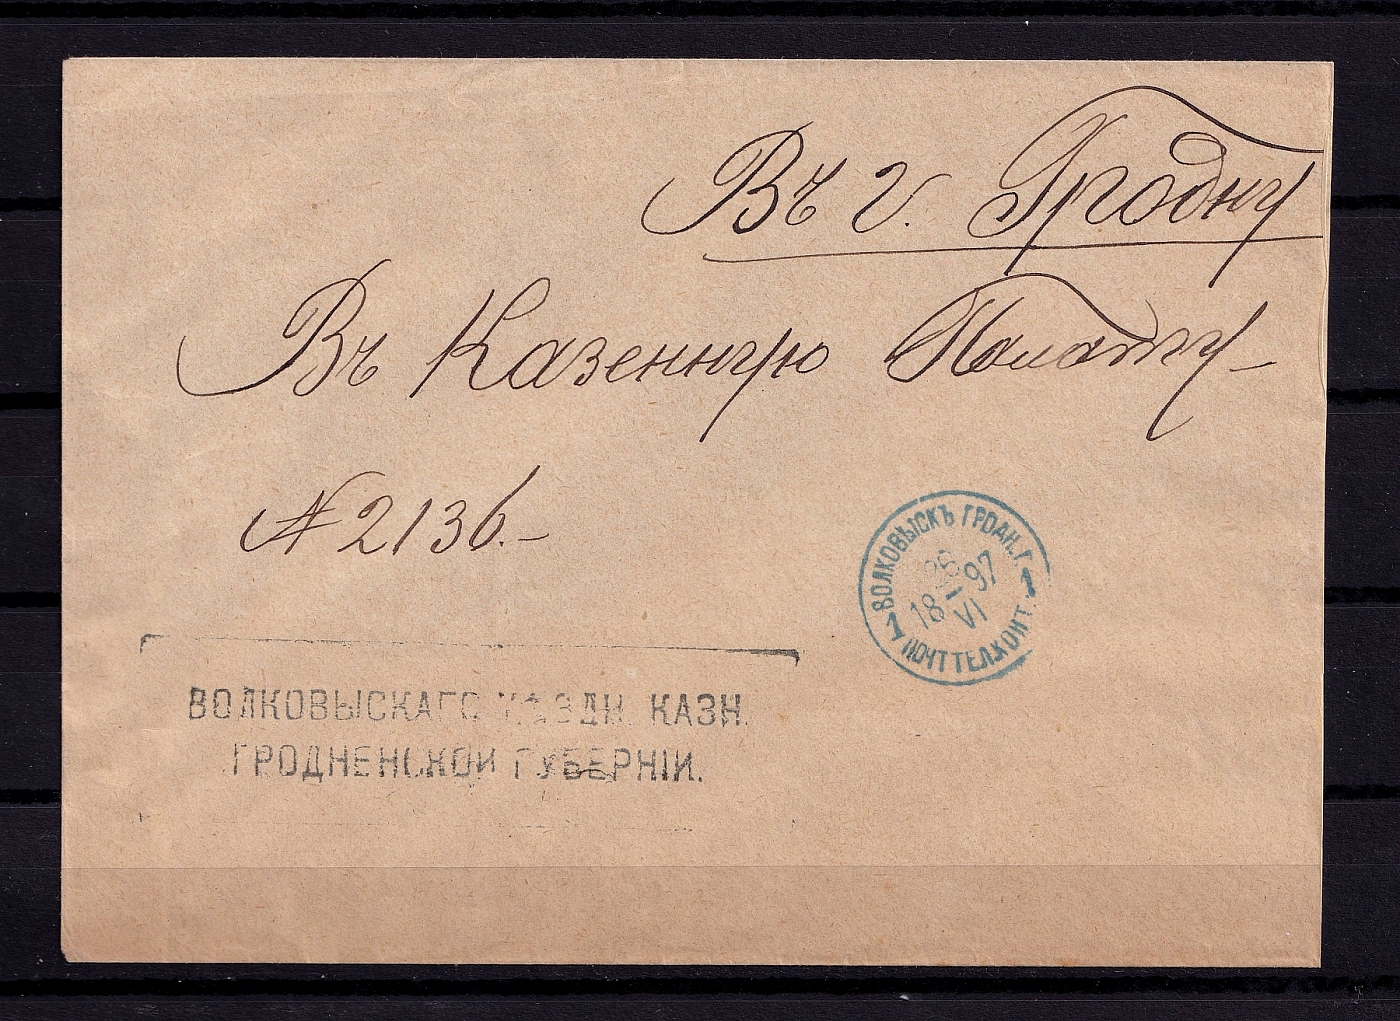 Въ г. Гродну
Въ Казенную Палату
№ 2136.
ВОЛКОВЫСКЪ ГРОДН. Г.
26
18 97
VI
1 ПОЧТ ТЕЛ. КОНТ. 1
ВОЛКОВЫСКАГО УѢЗДН. КАЗН.
ГРОДНЕНСКОЙ ГУБЕРНІИ.